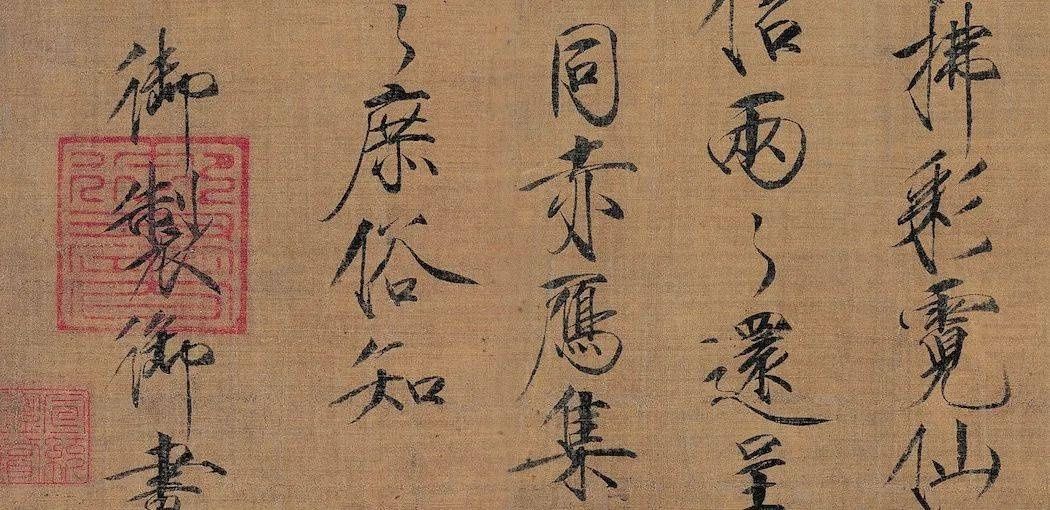 拂彩霓仙
侶兩〻還呈
同赤鴈集
〻庶俗知
御製御畫